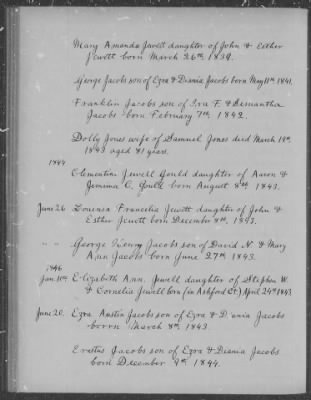 Mary Amanda Jewett daughter of John & Esther
Jewett born March 26th 1839.
George Jacobs son of Ezra & Diania Jacobs born May 11th 1841.
Franklin Jacobs son of Ira F. & Semantha
Jacobs born February 7th 1842.
Dolly Jones wife of Samuel Jones died March 19th
1843 aged 81 years.
1844
Clementina Jewell Gould daughter of Aaron &
Jemima C. Gould born August 8th 1843.
June 26 Louensa Francelia Jewett daughter of John &
Esther Jewett born December 8th, 1843.
" " George Henry Jacobs son of David N. & Mary
Ann Jacobs born June 27th 1843.
1846
Jan 10th Elizabeth Ann. Jewell daughter of Stephen W.
& Cornelia Jewell born (in Ashford Ct.) April 24th 1843
June 20. Ezra Austin Jacobs son of Ezra & Diania Jacobs
born March 8th 1843.
Erastus Jacobs son of Ezra & Diania Jacobs
born December 9th 1844.